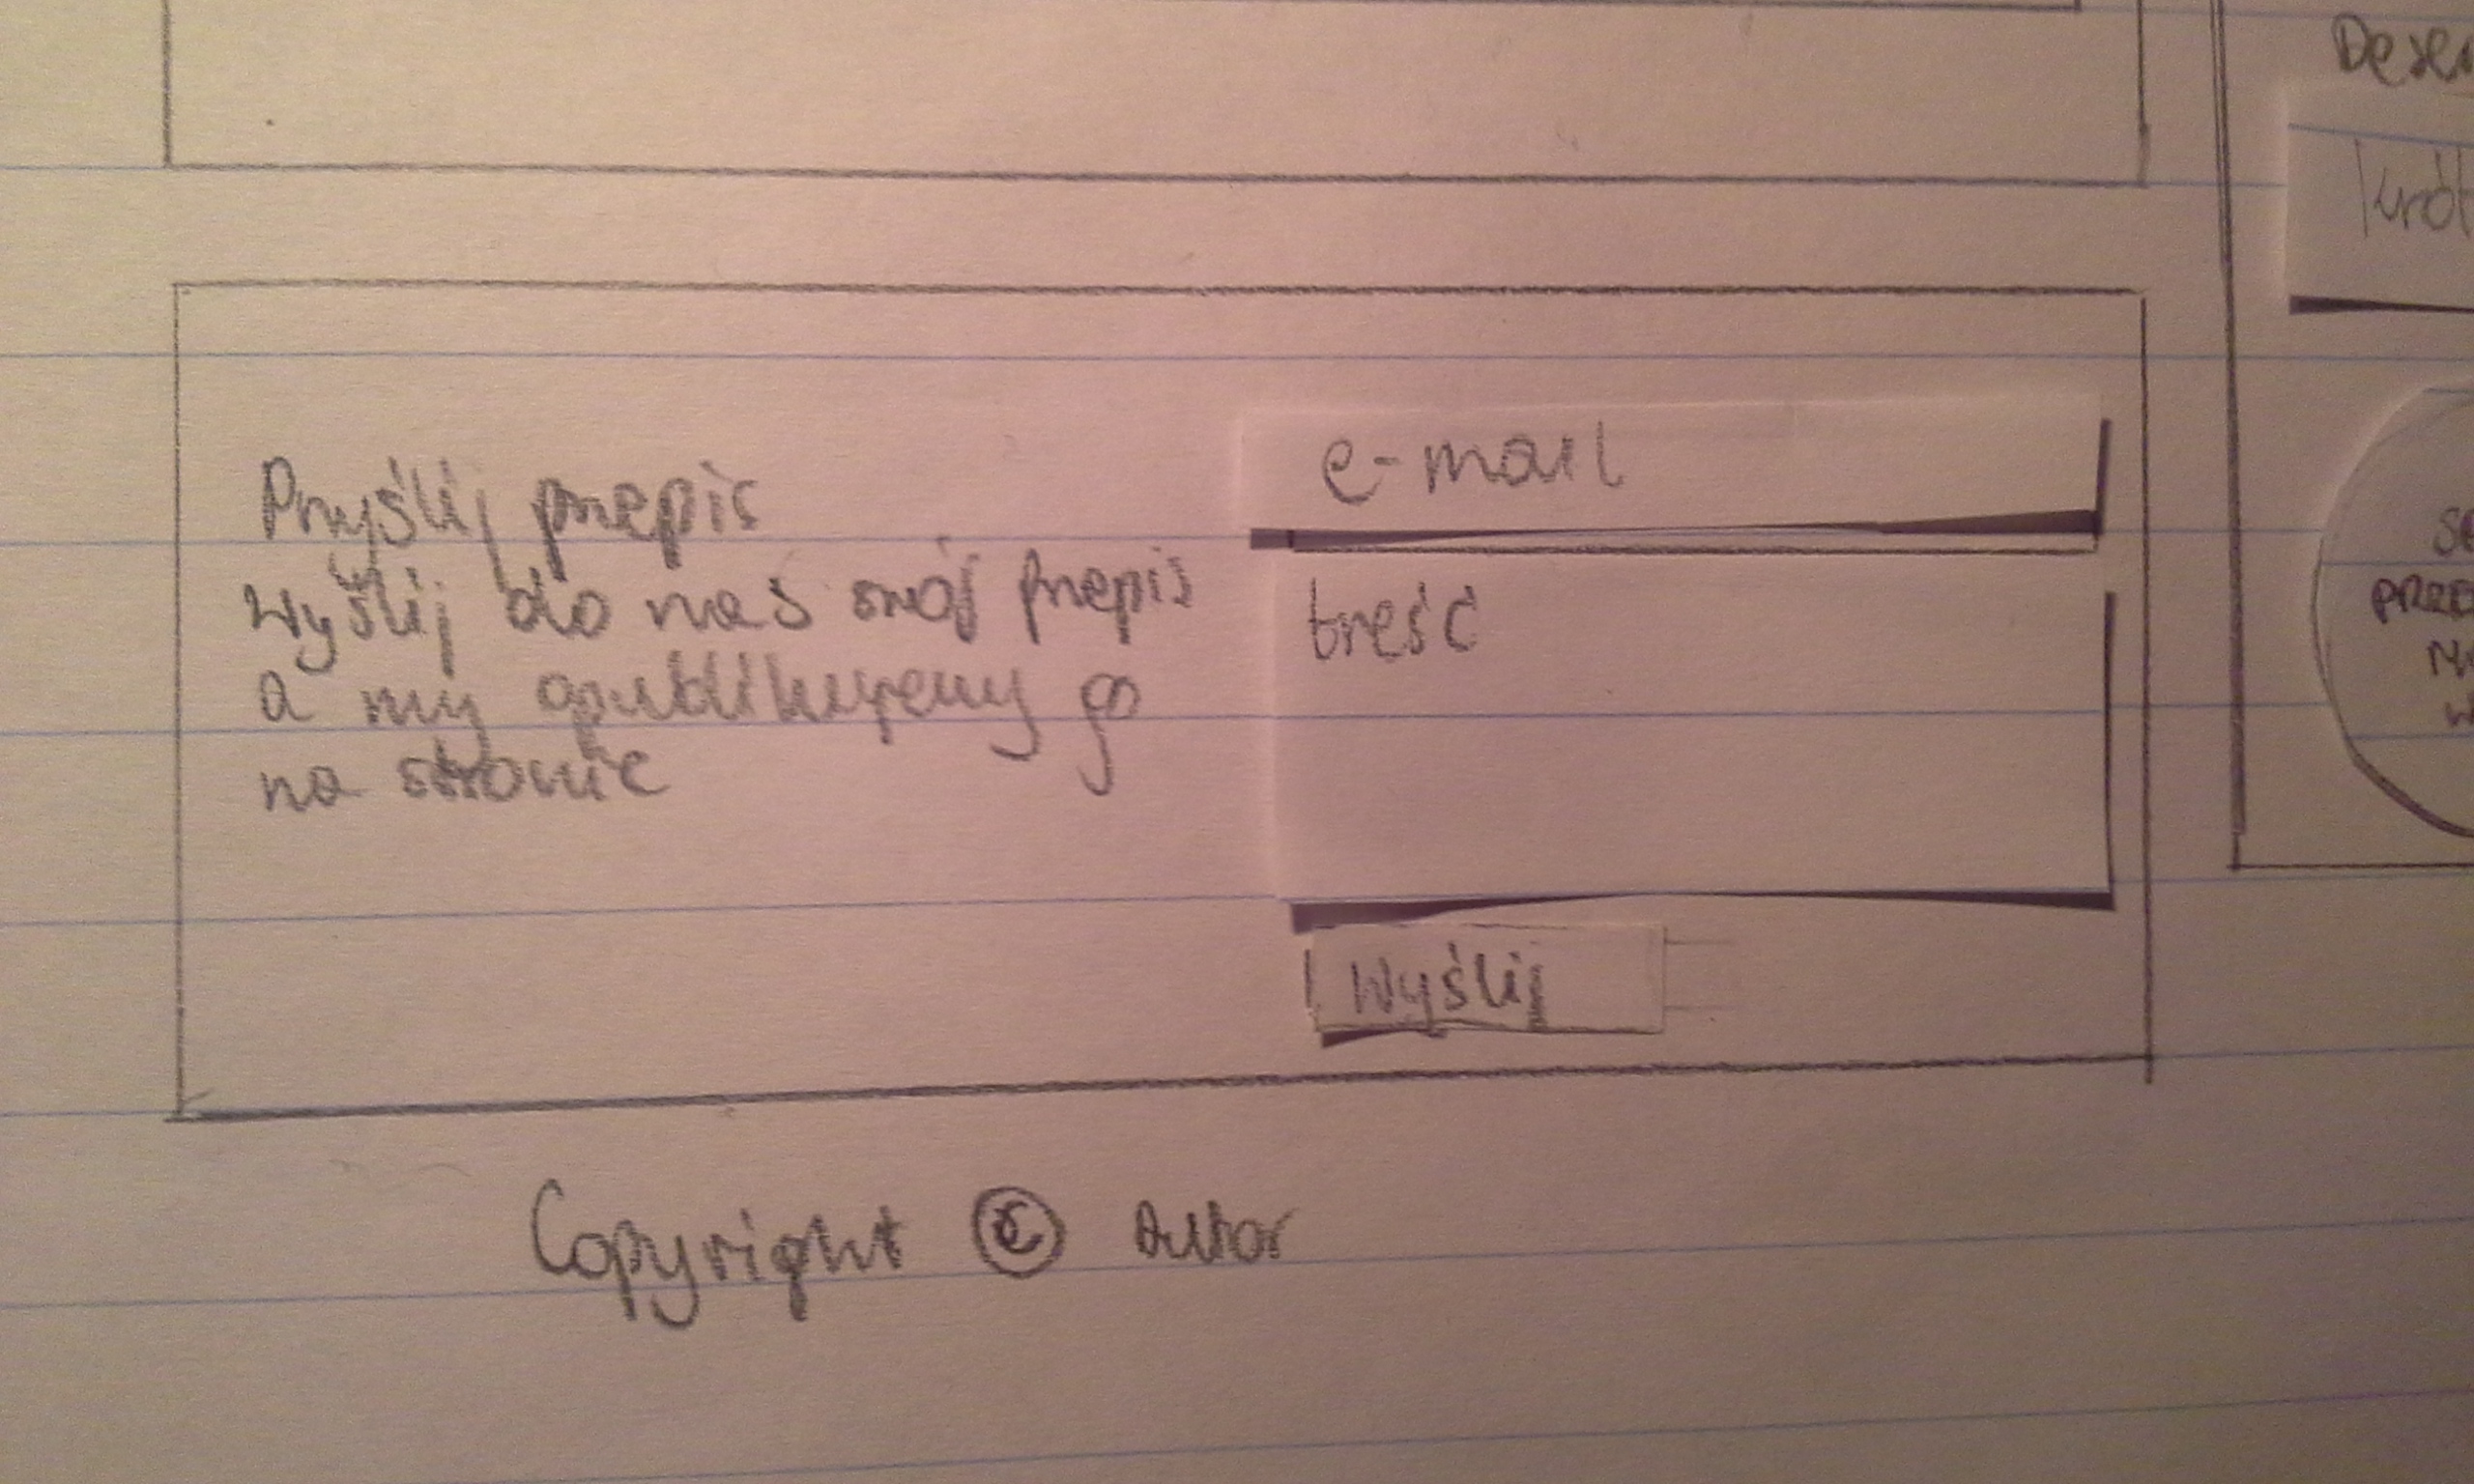 Przyślij przepis
Wyślij do nas swój przepis
a my opublikujemy go
na stronie
e-mail
treść
Wyślij
Copyright © Autor
Deser
krót